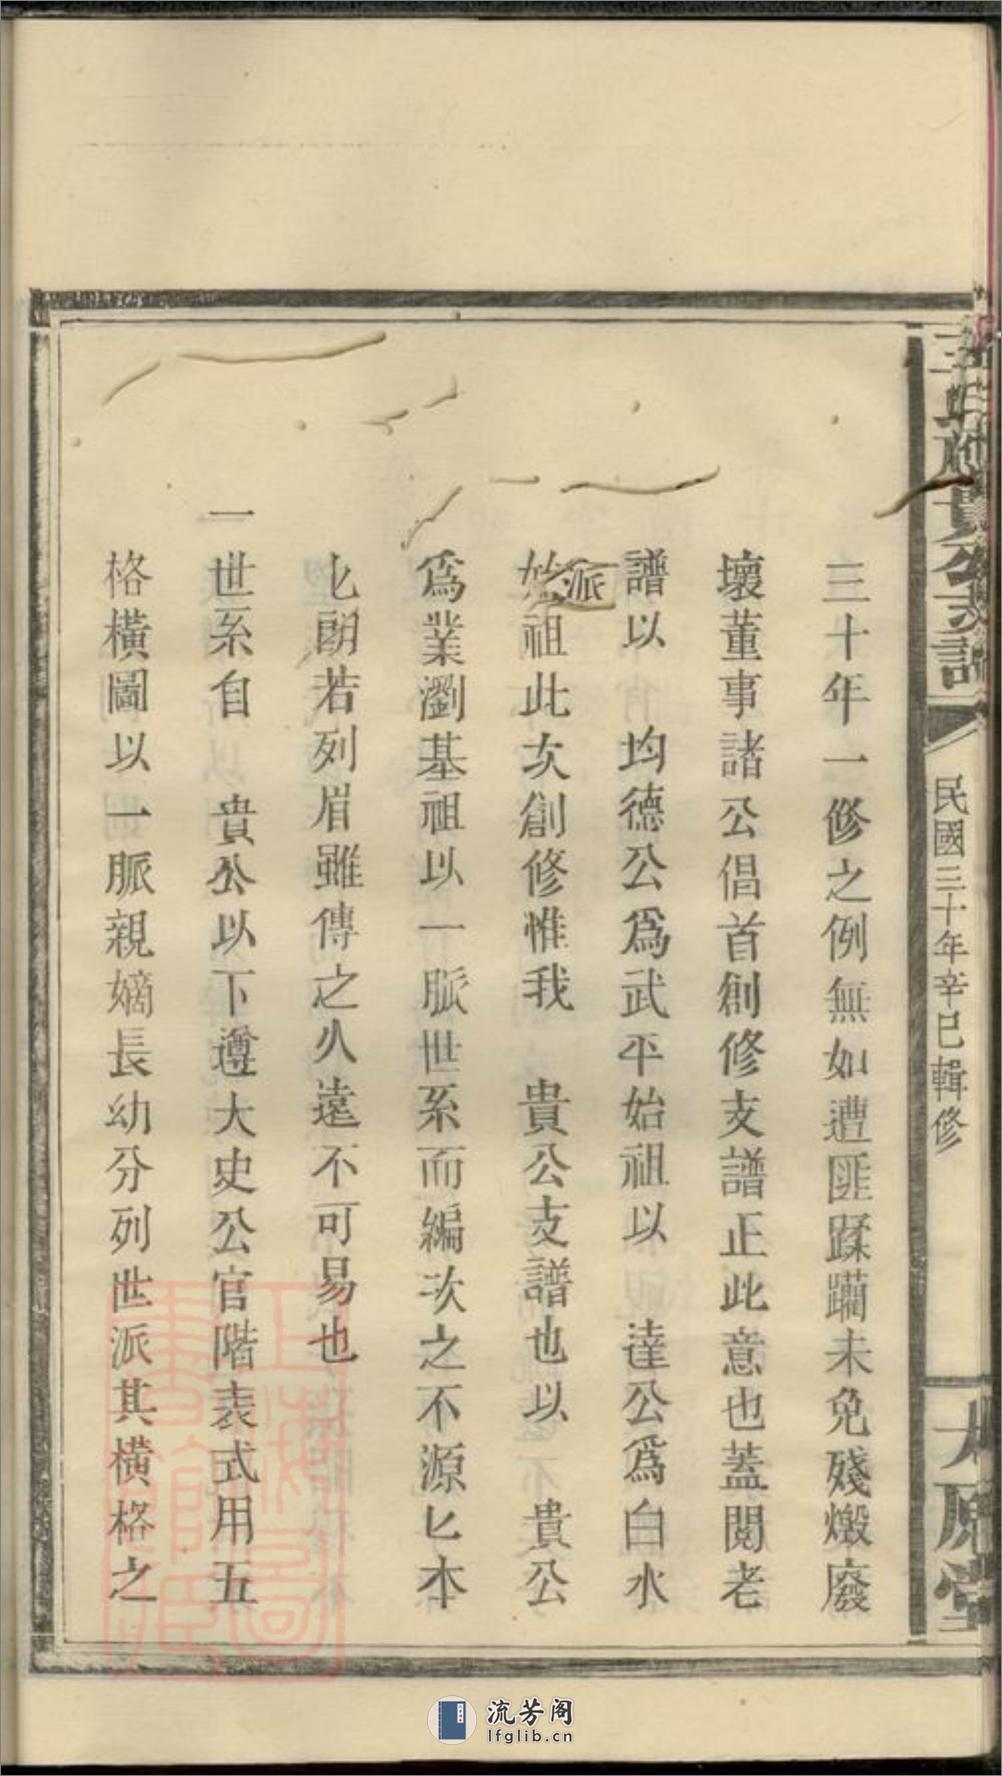 三十年一修之例無如遭匪蹂躪未免殘燬廢
壞董事諸公倡首創修支譜正此意也蓋閱老
譜以　均德公爲武平始祖以　達公爲白水
派
始祖此次創修惟我　貴公支譜也以　貴公
爲業瀏基祖以一脈世系而編次之不源匕本
匕朗若列眉雖傳之久遠不可易也
一世系自　貴公以下遵大史公官階表式用五
格橫圖以一脈親嫡長幼分列世派其橫格之
貴公支譜
民國三十年辛巳輯修
流芳阁
lfglib.cn